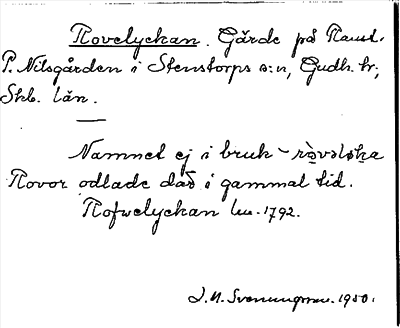 Rovelyckan. Gärde på Raust.
P. Nilsgården i Stenstorps s:n, Gudh. hr;
Skb. län.
Namnet ej i bruk -
Rovor odlade där i gammal tid.
Rofwelyckan lu. 1792.
J. N. Svenungsson. 1930.